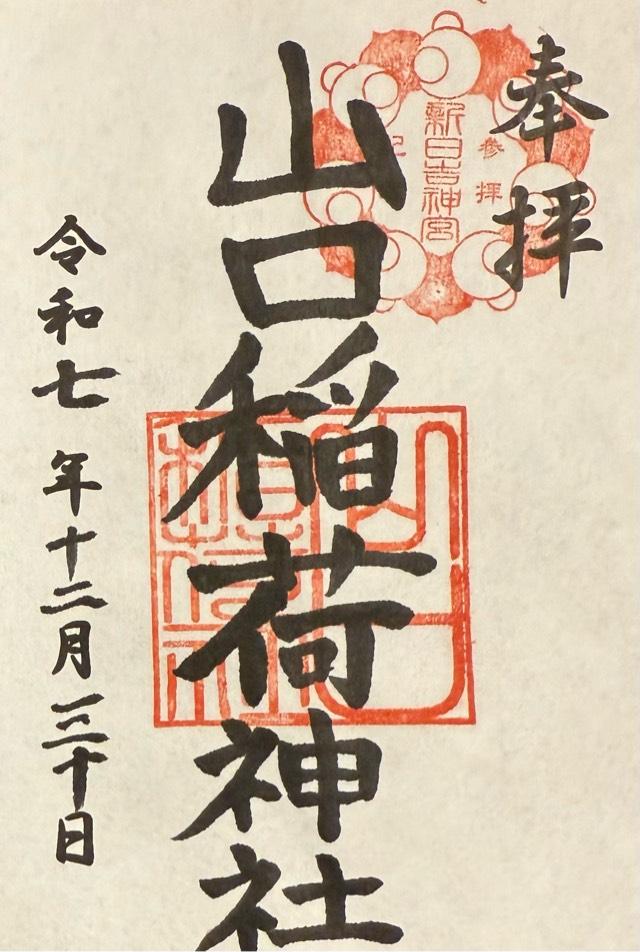 奉拝
参拝
新日吉神宮
山口稲荷神社
山口
稲荷社
令和七年十二月三十日